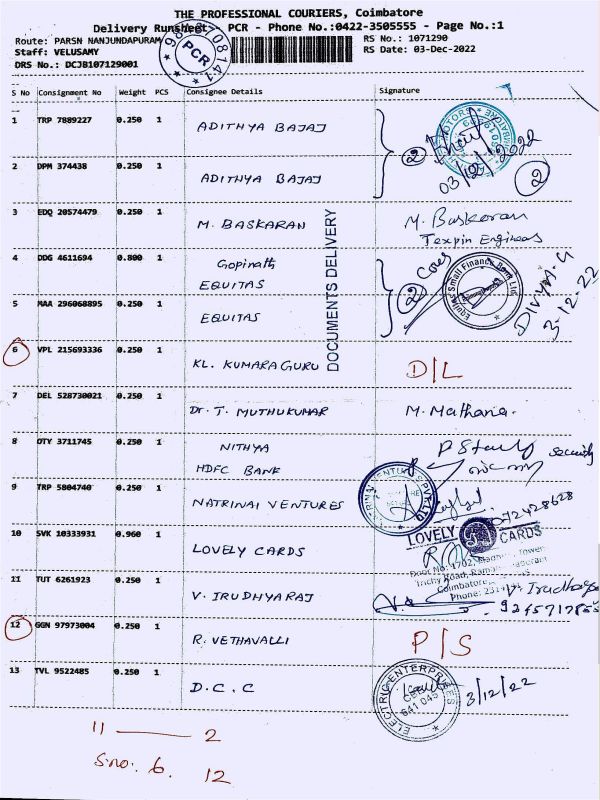 THE PROFESSIONAL COURIERS, Coimbatore
Delivery Runsheet - PCR - Phone No.:0422-3505555 - Page No.:1
Route: PARSN NANJUNDAPURAM
RS No.: 1071290
Staff: VELUSAMY
RS Date: 03-Dec-2022
DRS No.: DCJB107129001
PCR
S No Consignment No Weight PCS Consignee Details Signature
1 TRP 7889227 0.250 1 ADITHYA BAJAJ
2
03/12/2022
2 DPM 374438 0.250 1 ADITHYA BAJAJ
2
3 EDQ 20574479 0.250 1 M. BASKARAN M. Baskaran
Texpin Engineers
DOCUMENTS DELIVERY
4 DDG 4611694 0.800 1 Gopinath
EQUITAS
2 Cover
Equitas Small Finance Bank Ltd
DIVYA.G
3-12-22
5 MAA 296068895 0.250 1 EQUITAS
6 VPL 215693336 0.250 1 KL. KUMARAGURU D/L
7 DEL 528730021 0.250 1 Dr. T. MUTHUKUMAR M. Mathana.
8 OTY 3711745 0.250 1 NITHYA
HDFC BANK
security
9 TRP 5804740 0.250 1 NATRINAI VENTURES
10 SVK 10333931 0.960 1 LOVELY CARDS
LOVELY CARDS
Door No: 1702, Tower
Trichy Road,
Coimbatore
Phone:
11 TUT 6261923 0.250 1 V. IRUDHYARAJ
12 GGN 97973004 0.250 1 R. VETHAVALLI P/S
13 TVL 9522485 0.250 1 D.C.C
ELECTRIC ENTERPRISES
641 045
3/12/22
11 — 2
S.no: 6. 12